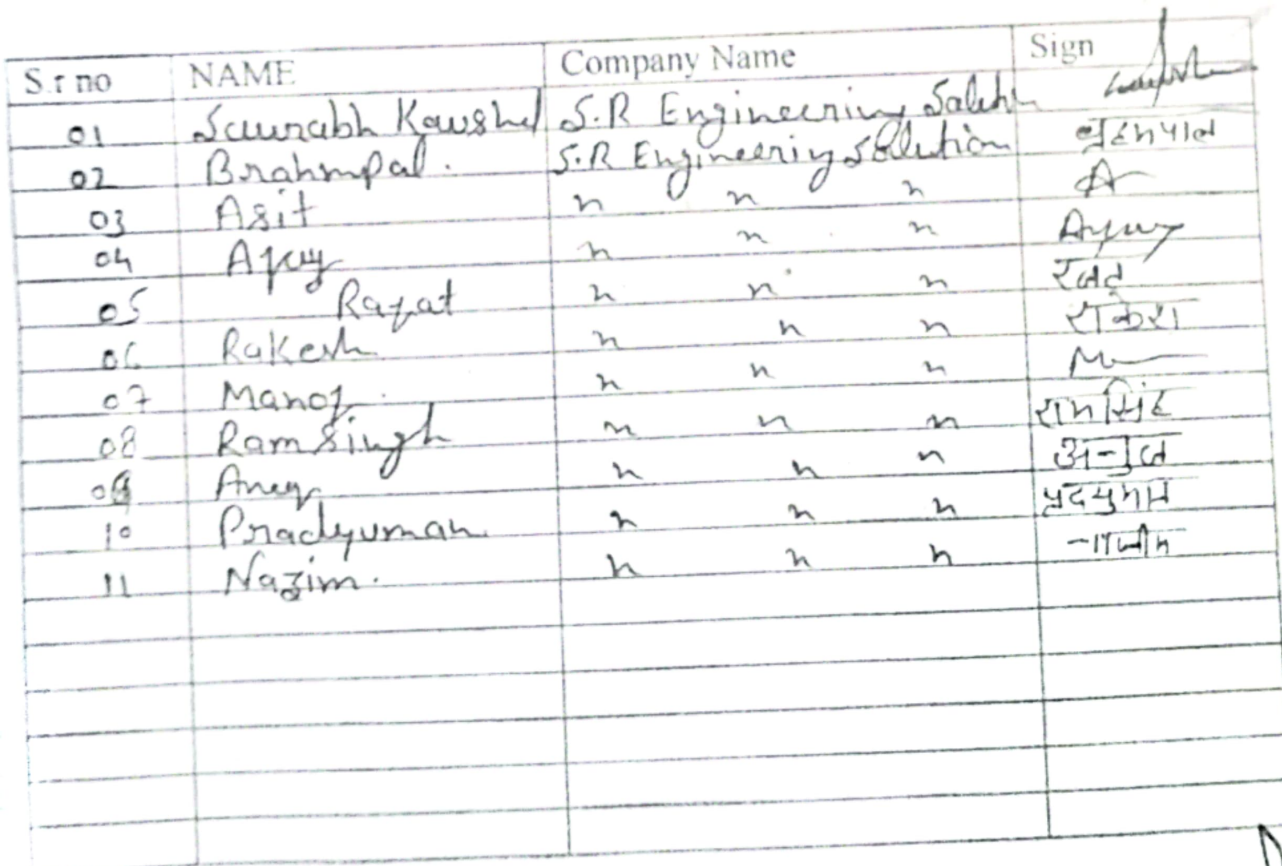 S.r no NAME Company Name Sign
01 Saurabh Kaushal S.R Engineering Soluti
02 Brahmpal. S.R Engineering Solution ब्रहमपाल
03 Asit " " " A
04 Ajay " " " Ajay
05 Rajat " " " रजत
06 Rakesh " " " राकेश
07 Manoj " " "
08 Ram Singh " " " रामसिंह
09 Anuj " " " अनुज
10 Pradyuman " " " प्रदयुमान
11 Nazim. " " " नाजीम